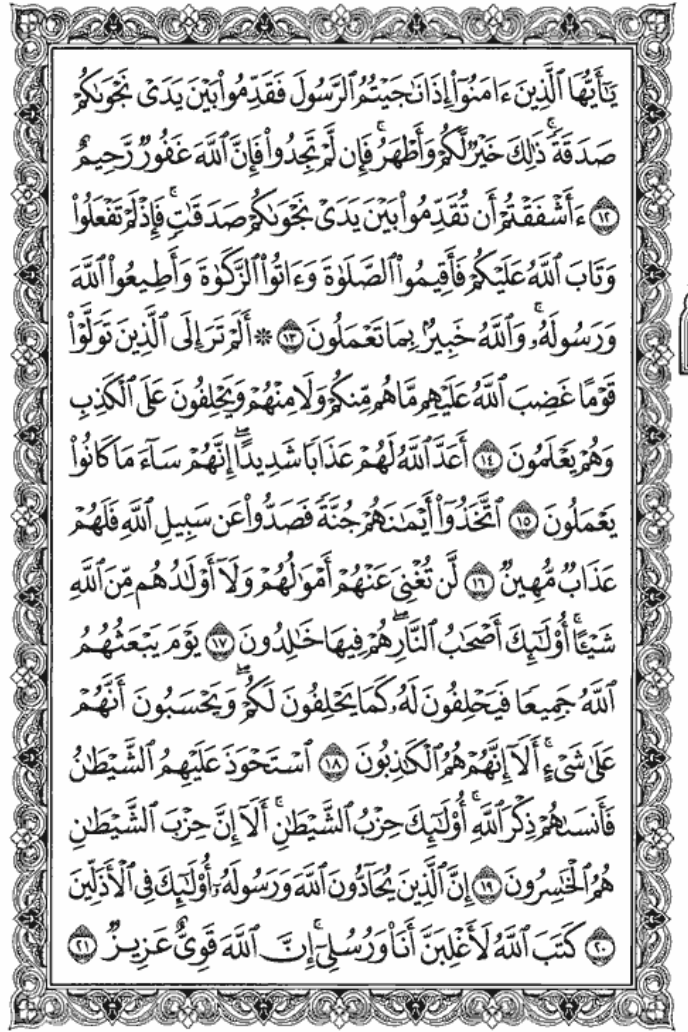 يَٰٓأَيُّهَا ٱلَّذِينَ ءَامَنُوٓاْ إِذَا نَٰجَيۡتُمُ ٱلرَّسُولَ فَقَدِّمُواْ بَيۡنَ يَدَيۡ نَجۡوَىٰكُمۡ
صَدَقَةٗۚ ذَٰلِكَ خَيۡرٞ لَّكُمۡ وَأَطۡهَرُۚ فَإِن لَّمۡ تَجِدُواْ فَإِنَّ ٱللَّهَ غَفُورٞ رَّحِيمٌ
١٢ ءَأَشۡفَقۡتُمۡ أَن تُقَدِّمُواْ بَيۡنَ يَدَيۡ نَجۡوَىٰكُمۡ صَدَقَٰتٖۚ فَإِذۡ لَمۡ تَفۡعَلُواْ
وَتَابَ ٱللَّهُ عَلَيۡكُمۡ فَأَقِيمُواْ ٱلصَّلَوٰةَ وَءَاتُواْ ٱلزَّكَوٰةَ وَأَطِيعُواْ ٱللَّهَ
وَرَسُولَهُۥۚ وَٱللَّهُ خَبِيرُۢ بِمَا تَعۡمَلُونَ ١٣ ۞ أَلَمۡ تَرَ إِلَى ٱلَّذِينَ تَوَلَّوۡاْ
قَوۡمًا غَضِبَ ٱللَّهُ عَلَيۡهِم مَّا هُم مِّنكُمۡ وَلَا مِنۡهُمۡ وَيَحۡلِفُونَ عَلَى ٱلۡكَذِبِ
وَهُمۡ يَعۡلَمُونَ ١٤ أَعَدَّ ٱللَّهُ لَهُمۡ عَذَابٗا شَدِيدًاۖ إِنَّهُمۡ سَآءَ مَا كَانُواْ
يَعۡمَلُونَ ١٥ ٱتَّخَذُوٓاْ أَيۡمَٰنَهُمۡ جُنَّةٗ فَصَدُّواْ عَن سَبِيلِ ٱللَّهِ فَلَهُمۡ
عَذَابٞ مُّهِينٞ ١٦ لَّن تُغۡنِيَ عَنۡهُمۡ أَمۡوَٰلُهُمۡ وَلَآ أَوۡلَٰدُهُم مِّنَ ٱللَّهِ
شَيۡـًٔاۚ أُوْلَٰٓئِكَ أَصۡحَٰبُ ٱلنَّارِۖ هُمۡ فِيهَا خَٰلِدُونَ ١٧ يَوۡمَ يَبۡعَثُهُمُ
ٱللَّهُ جَمِيعٗا فَيَحۡلِفُونَ لَهُۥ كَمَا يَحۡلِفُونَ لَكُمۡ وَيَحۡسَبُونَ أَنَّهُمۡ
عَلَىٰ شَيۡءٍۚ أَلَآ إِنَّهُمۡ هُمُ ٱلۡكَٰذِبُونَ ١٨ ٱسۡتَحۡوَذَ عَلَيۡهِمُ ٱلشَّيۡطَٰنُ
فَأَنسَىٰهُمۡ ذِكۡرَ ٱللَّهِۚ أُوْلَٰٓئِكَ حِزۡبُ ٱلشَّيۡطَٰنِۚ أَلَآ إِنَّ حِزۡبَ ٱلشَّيۡطَٰنِ
هُمُ ٱلۡخَٰسِرُونَ ١٩ إِنَّ ٱلَّذِينَ يُحَآدُّونَ ٱللَّهَ وَرَسُولَهُۥٓ أُوْلَٰٓئِكَ فِي ٱلۡأَذَلِّينَ
٢٠ كَتَبَ ٱللَّهُ لَأَغۡلِبَنَّ أَنَا۠ وَرُسُلِيٓۚ إِنَّ ٱللَّهَ قَوِيٌّ عَزِيزٞ ٢١